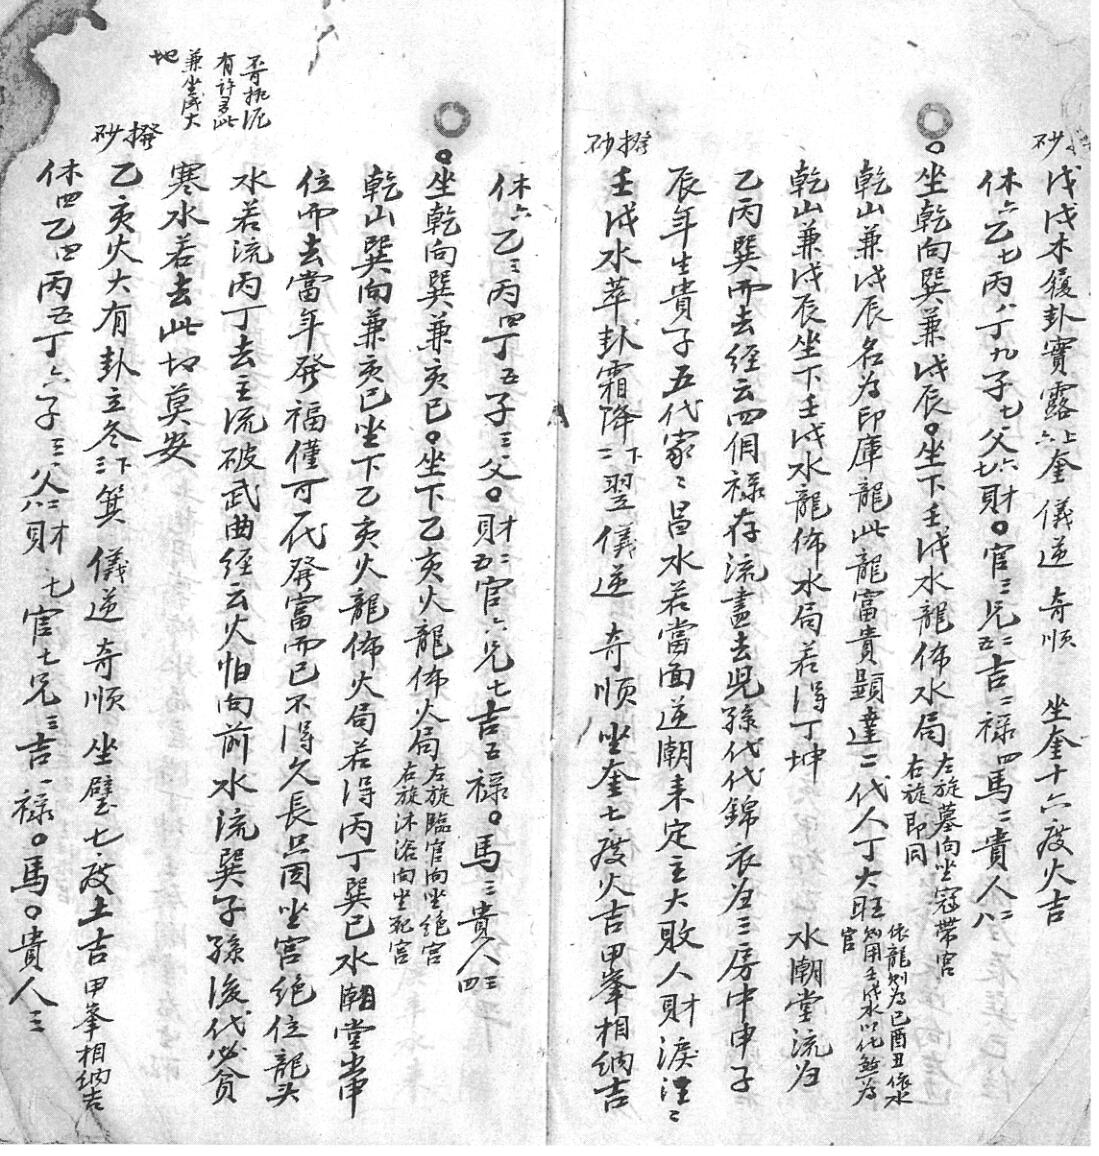 撥砂
戊戌木履卦寒露上六奎 儀逆 奇順 坐奎十六度火吉
休六乙七丙八丁九子七父六七財〇官三兄二五吉二禄四馬二貴人二八
坐乾向巽兼戌辰〇坐下壬戌水龍佈水局 左旋墓向坐冠帶宮
右旋即同
乾山兼戌辰名為印庫龍此龍富貴顯達二代人丁大旺 依龍則為巳酉丑依水
則用壬戌水以化煞為官
乾山兼戌辰坐下壬戌水龍佈水局若得丁坤 水潮堂流归
乙丙巽而去经云四個禄存流盡去児孫代代錦衣归三房中申子
辰年生貴子五代家〻昌水若當面逆潮来定主大敗人財淚注〻
撥砂
壬戌水萃卦霜降下二翌 儀逆 奇順 坐奎七度火吉甲峯相納吉
休六乙三丙四丁五子三父〇財二五官六兄七吉五禄〇馬三貴人三四
坐乾向巽兼亥巳〇坐下乙亥火龍佈火局 左旋臨官向坐绝宮
右旋沐浴向坐死宮
乾山巽向兼亥巳坐下乙亥火龍佈火局若得丙丁巽巳水潮堂当申
位而去當年發福僅可一代發富而已不得久長只因坐宫绝位龍头
水若流丙丁去主流破武曲经云火怕向前水流巽子孫後代必贫
寒水若去此切莫安
有許哥此
兼坐戌大
地
撥砂
乙亥火大有卦立冬下三箕 儀逆 奇順 坐璧七度土吉甲峯相纳吉
休四乙四丙五丁六子三父二八財七官七兄三吉一禄〇馬〇貴人三